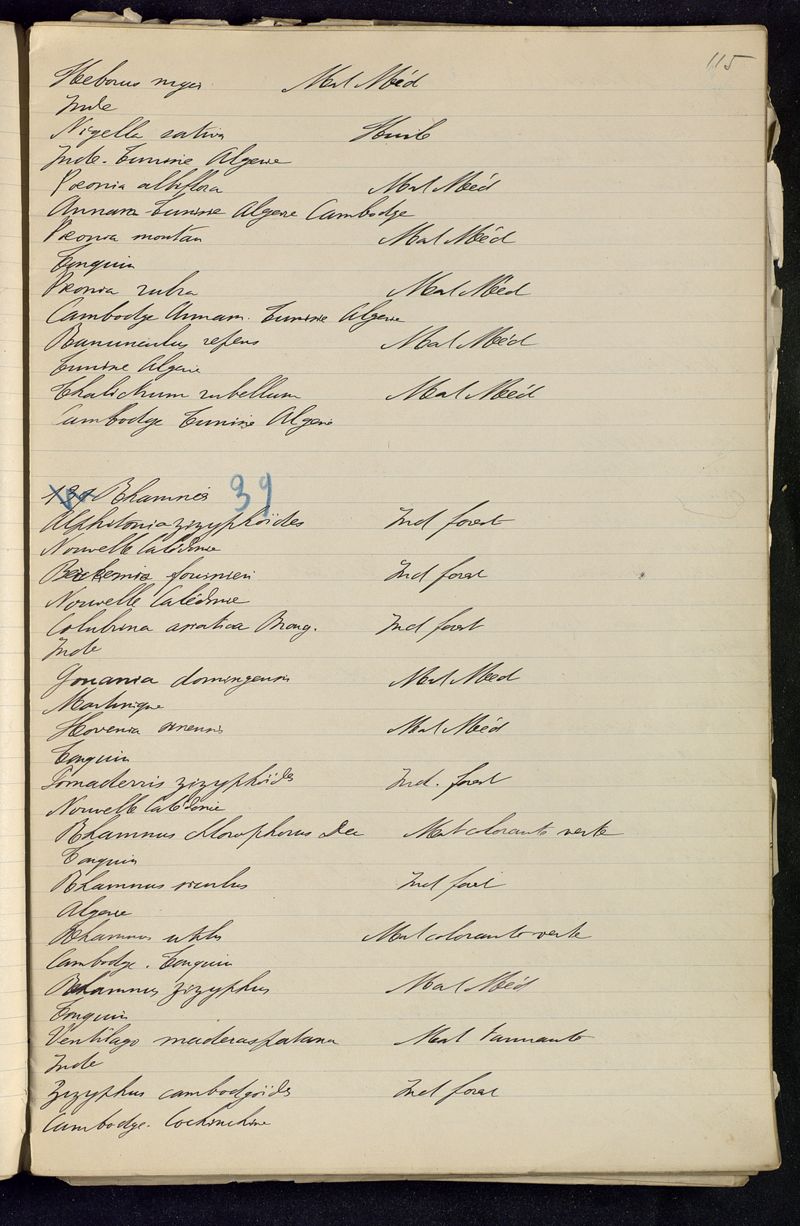 115
Heborus niger Mat Méd
Inde
Nigella sativa Huile
Inde. Tunisie Algerie
Pœonia albiflora Mat Méd
Annam Tunisie Algerie Cambodge
Pœonia moutan Mat Méd
Tonquin
Pœonia rubra Mat Méd
Cambodge Annam. Tunisie Algerie
Ranunculus repens Mat Méd
Tunisie Algerie
Thalictrum rubellum Mat Méd
Cambodge Tunisie Algerie
131 Rhamnées 39
Alphitonia zizyphoïdes Ind forest
Nouvelle Calédonie
Berchemia fournieri Ind forest
Nouvelle Calédonie
Colubrina asiatica Brong. Ind forest
Inde
Gouania domingensis Mat Méd
Martinique
Hovenia sinensis Mat Méd
Tonquin
Pomaderris zizyphoïdes Ind. forest
Nouvelle Calédonie
Rhamnus chlorophorus Mat colorante verte
Tonquin
Rhamnus siculus Ind forest
Algerie
Rhamnus utilis Mat colorante verte
Cambodge. Tonquin
Rhamnus zizyphus Mat Méd
Tonquin
Ventilago maderaspatana Mat Tannante
Inde
Zizyphus cambodgoïdes Ind forest
Cambodge. Cochinchine